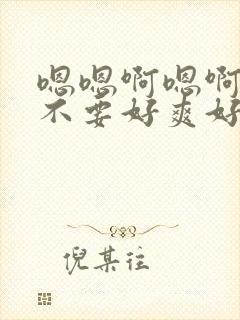 嗯嗯啊嗯啊
不要好爽好
倪某往